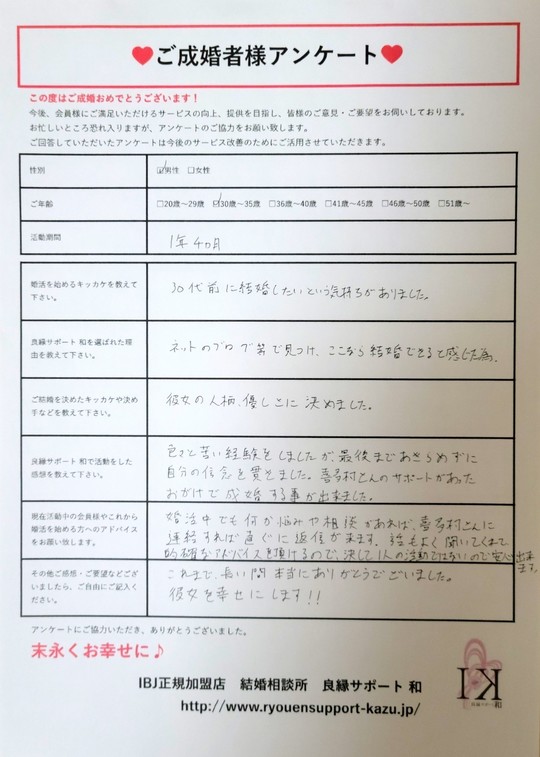 ♥ご成婚者様アンケート♥
この度はご成婚おめでとうございます！
今後、会員様にご満足いただけるサービスの向上、提供を目指し、皆様のご意見・ご要望をお伺いしております。
お忙しいところ恐れ入りますが、アンケートのご協力をお願い致します。
ご回答していただいたアンケートは今後のサービス改善のためにご活用させていただきます。
性別
☑男性 □女性
ご年齢
□20歳～29歳 ☑30歳～35歳 □36歳～40歳 □41歳～45歳 □46歳～50歳 □51歳～
活動期間
1年4ヵ月
婚活を始めるキッカケを教えて
下さい。
30代前に結婚したいという気持ちがありました。
良縁サポート 和を選ばれた理
由を教えて下さい。
ネットのブログ等で見つけ、ここなら結婚できると感じた為。
ご結婚を決めたキッカケや決め
手などを教えて下さい。
彼女の人柄、優しさに決めました。
良縁サポート 和で活動をした
感想を教えて下さい。
色々と苦い経験をしましたが、最後まであきらめずに
自分の信念を貫きました。喜多村さんのサポートがあった
おかげで成婚する事が出来ました。
現在活動中の会員様やこれから
婚活を始める方へのアドバイス
をお願い致します。
婚活中でも何か悩みや相談があれば、喜多村さんに
連絡すれば直ぐに返信が来ます。話もよく聞いてくれて
的確なアドバイスを頂けるので、決して1人の活動ではないので安心出来
ます。
その他ご感想・ご要望などござ
いましたら、ご自由にご記入く
ださい。
これまで、長い間本当にありがとうございました。
彼女を幸せにします!!
アンケートにご協力いただき、ありがとうございました。
末永くお幸せに♪
IBJ正規加盟店 結婚相談所 良縁サポート 和
http://www.ryouensupport-kazu.jp/
KI
良縁サポート 和